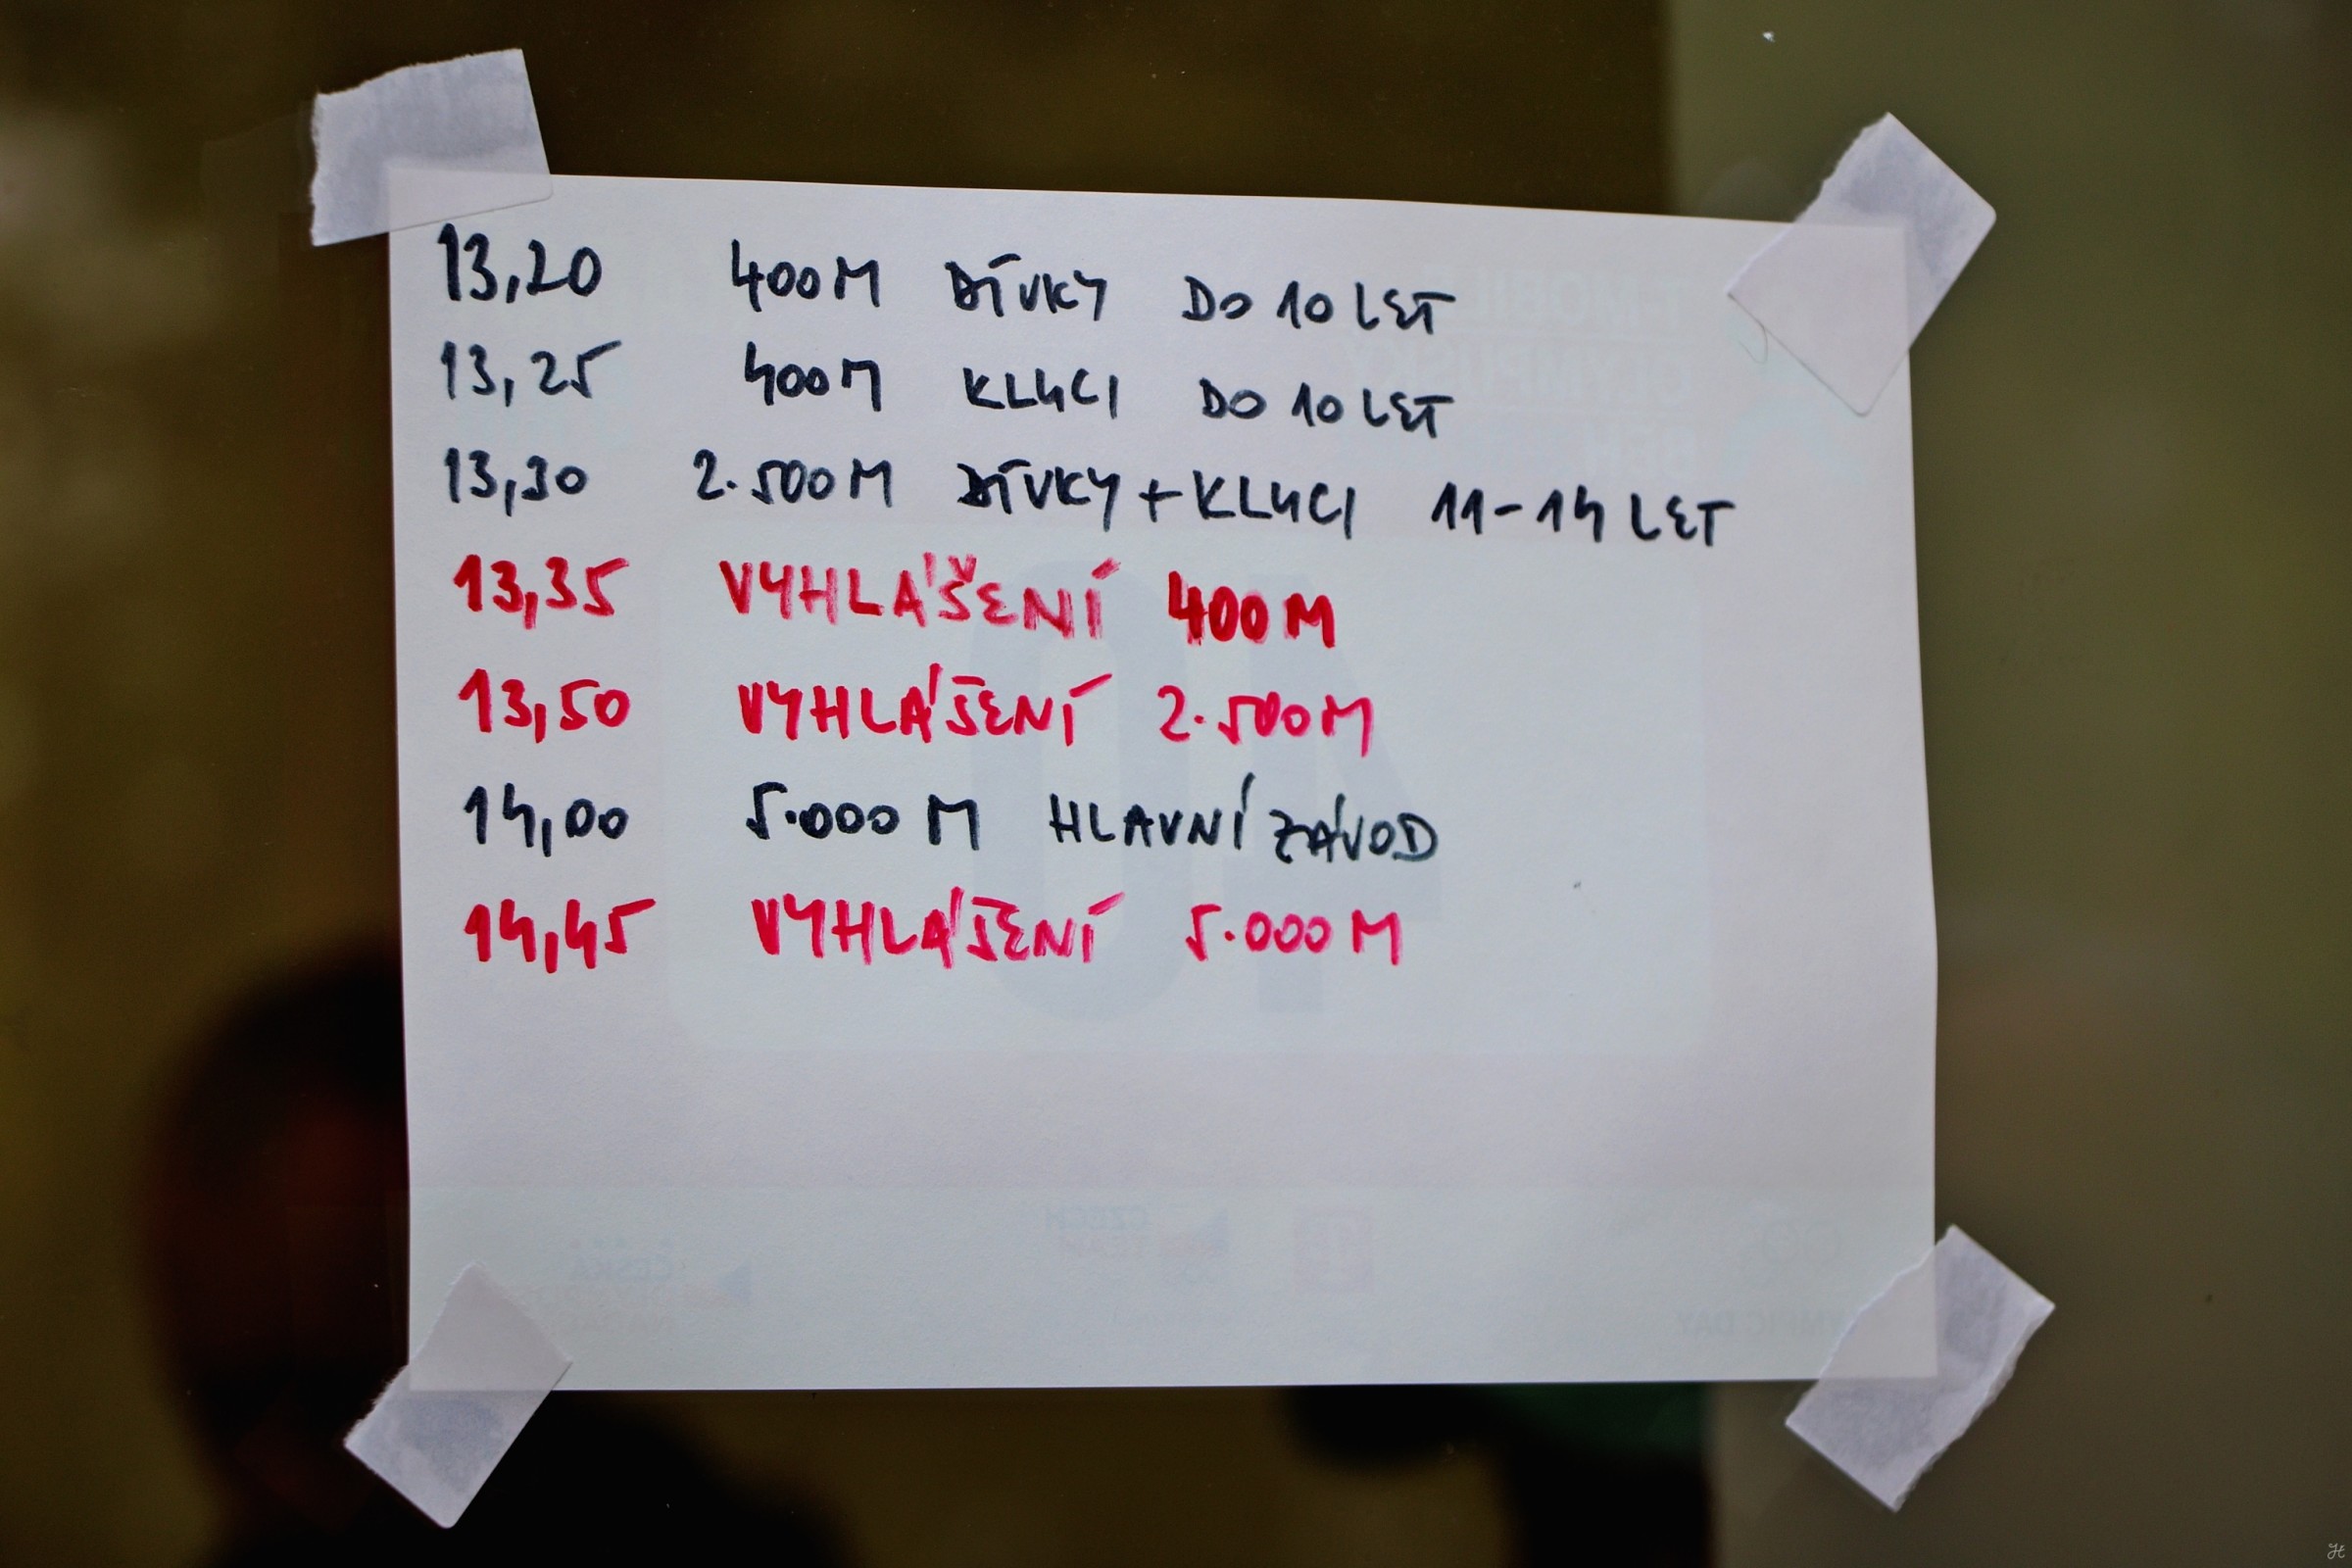 13,20 400M DÍVKY DO 10 LET
13,25 400M KLUCI DO 10 LET
13,30 2.500M DÍVKY + KLUCI 11-14 LET
13,35 VYHLÁŠENÍ 400M
13,50 VYHLÁŠENÍ 2.500M
14,00 5.000M HLAVNÍ ZÁVOD
14,45 VYHLÁŠENÍ 5.000M
40
CZECH
TEAM
ČESKÁ